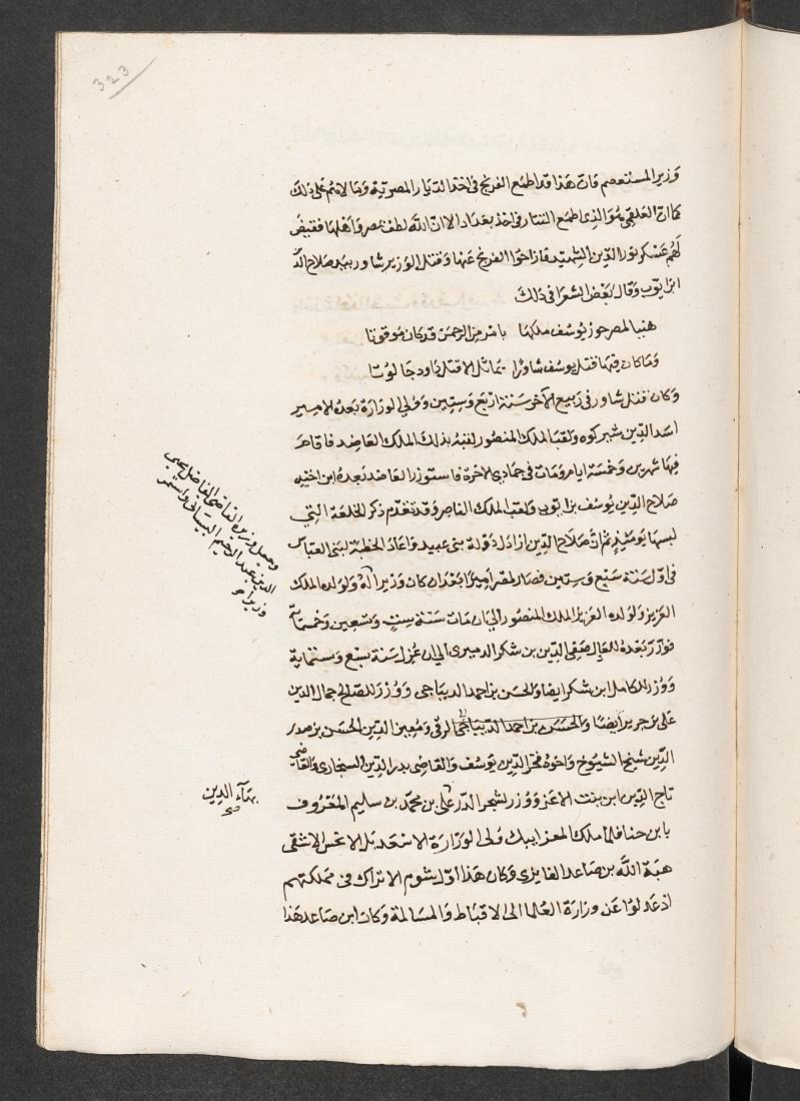 323
وزير المستعصم فان هذا قد اطمع الفرنج في اخذ الديار المصرية ومالاهم على ذلك
كما ان العلقمي هو الذي اطمع التتار في اخذ بغداد الا ان الله لطف بمصر واهلها فقيض
لهم عسكر نور الدين الشهيد فازاحوا الفرنج عنها وقتل الوزير شاور بيد صلاح الد
ابن ايوب وقال بعض الشعرا في ذلك
هنيا لمصر حوز يوسف ملكها بامر من الرحمن قد كان موقوتا
وما كان فيها قتل يوسف شاورا يماثل الا قتل داود جالوتا
وكان قتل شاور في ربيع الاخر سنة اربع وستين وولي الوزارة بعده الامير
اسد الدين شيركوه ولقب الملك المنصور لقبه بذلك الملك العاضد فاقام
فيها شهرين وخمسة ايام ومات في جمادي الاخرة فاستوزر العاضد بعده ابن اخيه
صلاح الدين يوسف بن ايوب ولقب الملك الناصر وقد تقدم ذكر الخلعة التي
لبسها يوميذ ثم ان صلاح الدين ازال دولة بني عبيد واعاد الخطبة لبني العباس
في اول سنة سبع وستين فصار لمصر اميرا بعد ان كان وزيرا له ولولده الملك
العزيز ولولده العزيز الملك المنصور الي ان مات سنة ست وتسعين وخمسماية
فوزر بعده للعادل صفي الدين بن شكر الدميري الي ان عزل سنة تسع وستماية
ووزر للكامل ابن شكر ايضا والحسن بن احمد الديباجي ووزر للصالح جمال الدين
علي بن جرير ايضا والحسن بن احمد الديباجي الرقي ومعين الدين الحسن بن صدر
الدين شيخ الشيوخ واخوه فخر الدين يوسف والقاضي بدر الدين السنجاري والقاضي
تاج الدين ابن بنت الاعز ووزر لشجر الدر علي بن محمد بن سليم المعروف
بابن حنا فلما ملك المعز ايبك ولي الوزارة الاسعد بل الانحس الاشقي
هبة الله بن صاعد الفايزي وكان هذا اول شوم الاتراك في مملكتهم
اذ عدلوا عن وزارة العلما الى الاقباط والمسالمة وكان ابن صاعد هذا
وجعل وزيره القاضي الفاضل محيي
الدين عبد الرحيم البيساني واستمر
وزيرا
بهاء الدين
صح